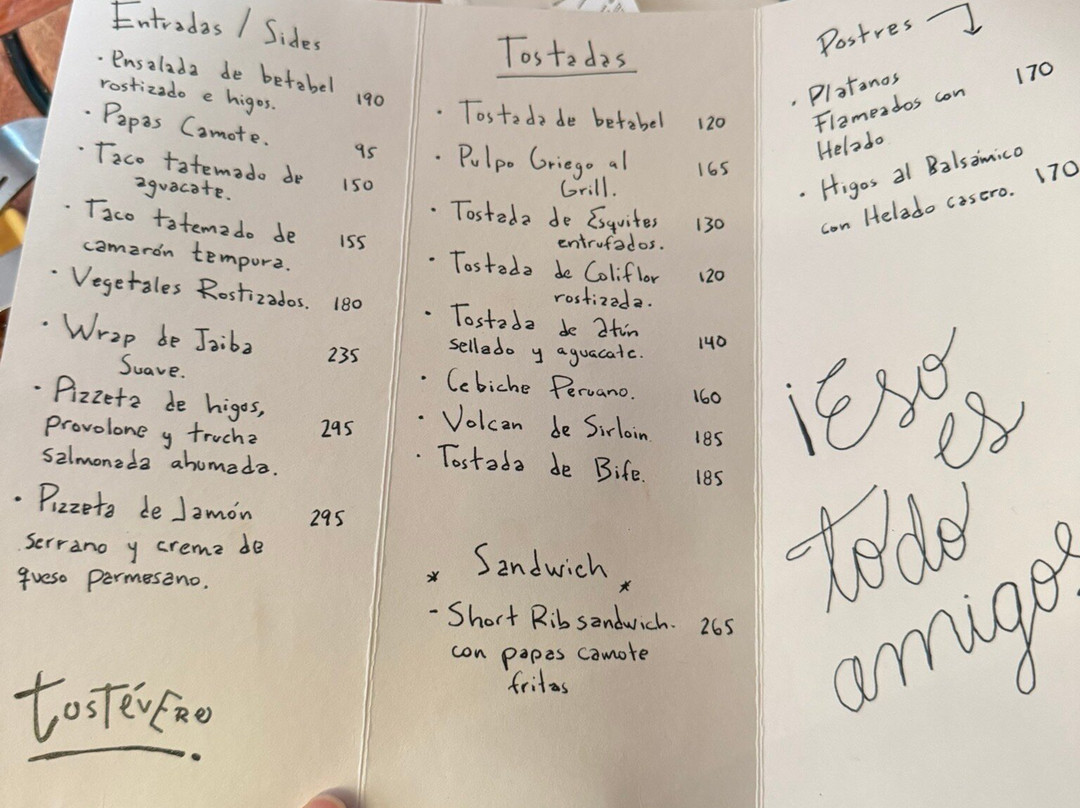 Entradas / Sides
· Ensalada de betabel
rostizado e higos. 190
· Papas Camote. 95
· Taco tatemado de
aguacate. 150
· Taco tatemado de 155
camarón tempura.
· Vegetales Rostizados. 180
· Wrap de Jaiba 235
Suave.
· Pizzeta de higos,
Provolone y trucha 295
Salmonada ahumada.
· Pizzeta de Jamón 295
Serrano y crema de
queso Parmesano.
tostévERo
Tostadas
· Tostada de betabel 120
· Pulpo Griego al 165
Grill.
· Tostada de Esquites 130
entrufados.
· Tostada de Coliflor 120
rostizada.
· Tostada de Atún 140
sellado y aguacate.
· Cebiche Peruano. 160
· Volcan de Sirloin 185
· Tostada de Bife. 185
* Sandwich *
- Short Rib sandwich. 265
con papas camote
fritas
Postres
· Platanos 170
Flameados con
Helado
· Higos al Balsámico 170
con Helado casero.
¡Eso
es
todo
amigos